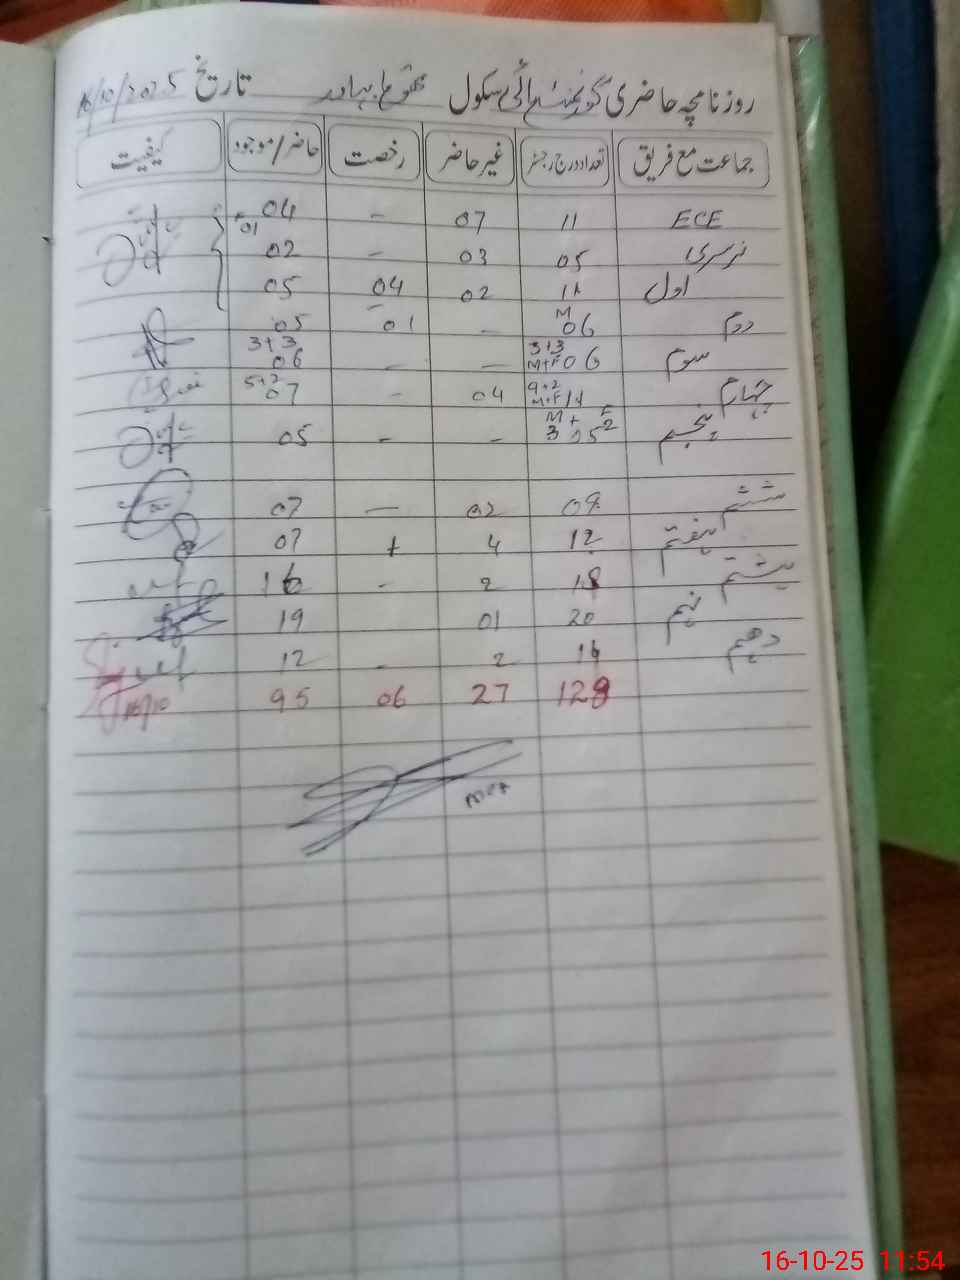 روزنامچہ حاضری گورنمنٹ ہائی سکول بہادر تاریخ 16/10/2025
جماعت مع فریق تعداد درج رجسٹر غیر حاضر رخصت حاضر/موجود کیفیت
ECE 11 07 - 04
01
نرسری 05 03 - 02
اول 11 02 04 05
دوم M 06 - 01 05
سوم 3+3 M+F 06 - - 3+3 06
چہارم 9+2 M+F 11 04 - 5+2 07
پنجم M + F 3 05 2 - - 05
ششم 09 02 - 07
ہفتم 12 4 1 07
ہشتم 18 2 - 16
نہم 20 01 19
دہم 14 2 - 12
128 27 06 95
16/10
MEA
16-10-25 11:54